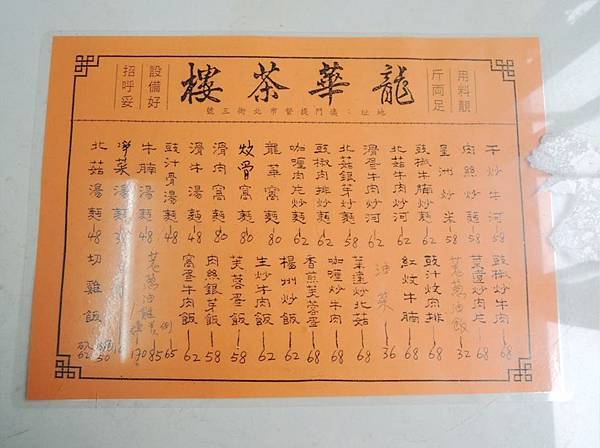 用料靚
斤両足
龍華茶樓
設備好
招呼妥
地址：澳門提督市北街三號
干炒牛河 58
肉絲炒麵 58
星洲炒米 58
豉椒牛腩炒麵 62
北菇牛肉炒河 62
滑蛋牛肉炒河 62
北菇銀芽炒麵 58
豉椒肉排炒麵 62
咖喱肉片炒麵 62
龍華窩麵 80
炆骨窩麵 80
滑肉窩麵 80
滑牛湯麵 48
豉汁骨湯麵 48
牛腩湯麵 48
淨菜湯麵
北菇湯麵 48
豉椒炒牛肉 68
菜薳炒肉片 68
葱油飯 32
豉汁炆肉排 68
紅炆牛腩 68
油菜 36
菜薳炒北菇 68
咖喱炒牛肉 68
香煎芙蓉蛋 68
楊州炒飯 62
生炒牛肉飯 62
芙蓉蛋飯 58
肉絲銀芽飯 58
窩蛋牛肉飯 62
例 65
葱油雞 85
170
切雞飯
62
50